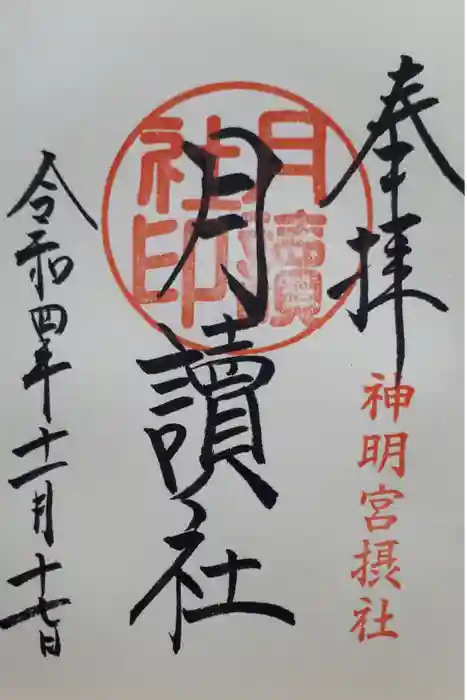 奉拝
神明宮摂社
月讀社
月讀社印
令和四年十一月十七日